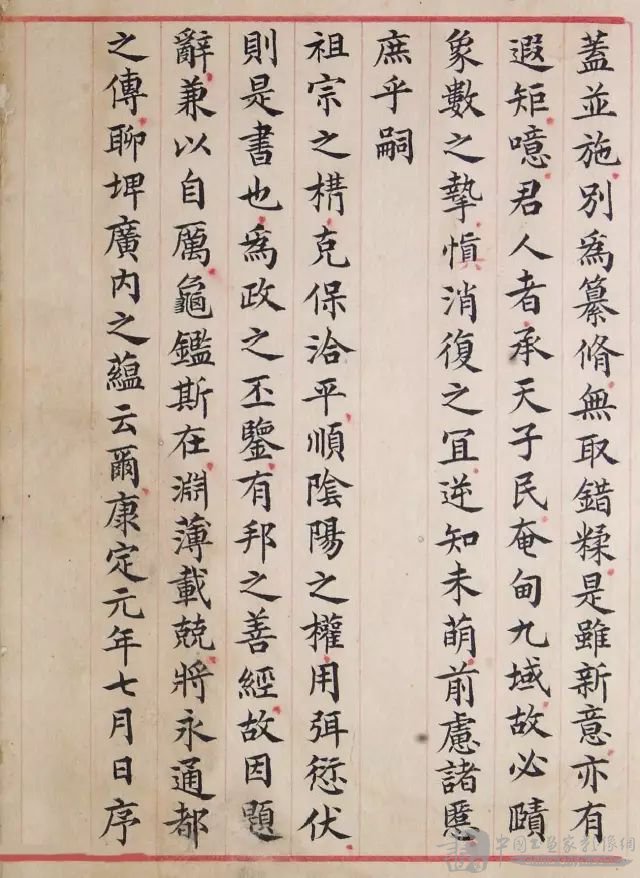 蓋並施別爲纂脩無取錯糅是雖新意亦有
遐矩噫君人者承天子民奄甸九域故必賾
象數之摯慎消復之冝逆知未萌前慮諸慝
庶乎嗣
祖宗之構克保洽平順隂陽之權用弭愆伏
則是書也爲政之丕鑒有邦之善經故因題
辭兼以自厲龜鑑斯在淵薄載兢將永通都
之傳聊埤廣內之蘊云爾康定元年七月日序